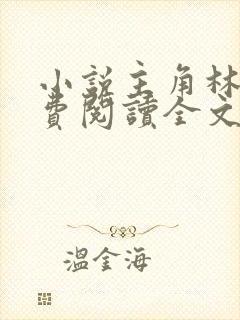 小說主角林
費閱讀全文
溫金海